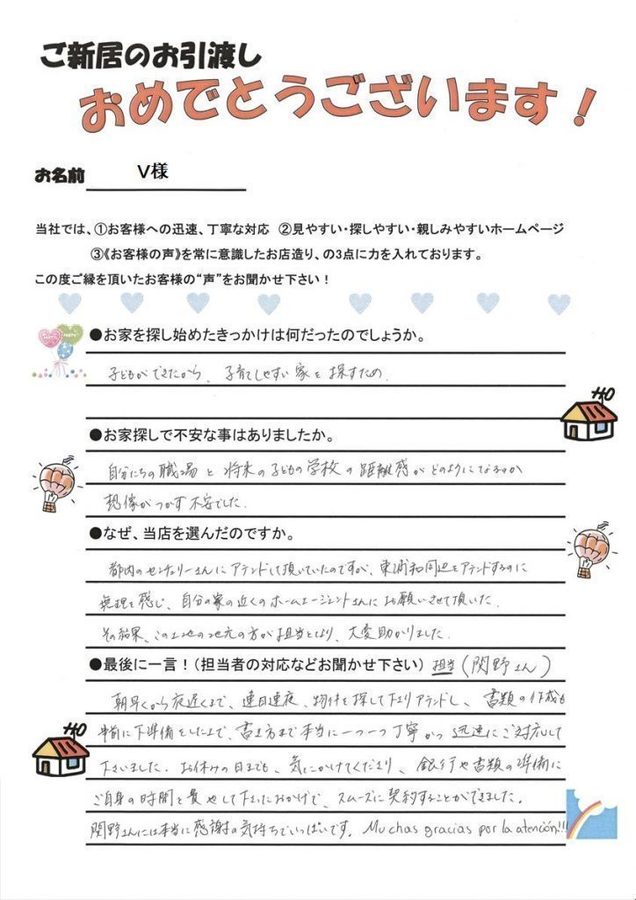 ご新居のお引渡し
おめでとうございます！
お名前 V様
当社では、①お客様への迅速、丁寧な対応 ②見やすい・探しやすい・親しみやすいホームページ
③《お客様の声》を常に意識したお店造り、の3点に力を入れております。
この度ご縁を頂いたお客様の“声”をお聞かせ下さい！
●お家を探し始めたきっかけは何だったのでしょうか。
子どもができたから、子育てしやすい家を探すため.
●お家探しで不安な事はありましたか。
自分たちの職場と将来の子どもの学校の距離感がどのようになるのか
想像がつかず不安でした.
●なぜ、当店を選んだのですか。
都内のセンチュリーさんにアテンドして頂いていたのですが、東浦和周辺をアテンドするのに
無理を感じ、自分の家の近くのホームエージェントさんにお願いさせて頂いた.
その結果、この土地の地元の方が担当となり、大変助かりました.
●最後に一言！（担当者の対応などお聞かせ下さい） 担当（関野さん）
朝早くから夜遅くまで、連日連夜、物件を探して下さりアテンドし、書類の作成も
事前に下準備をした上で、書き方まで本当に一つ一つ丁寧かつ迅速にご対応して
下さいました. お休みの日までも、気にかけてくださり、銀行や書類の準備に
ご自身の時間を費やして下さったおかげで、スムーズに契約することができました.
関野さんには本当に感謝の気持ちでいっぱいです. Muchas gracias por la atención!!!